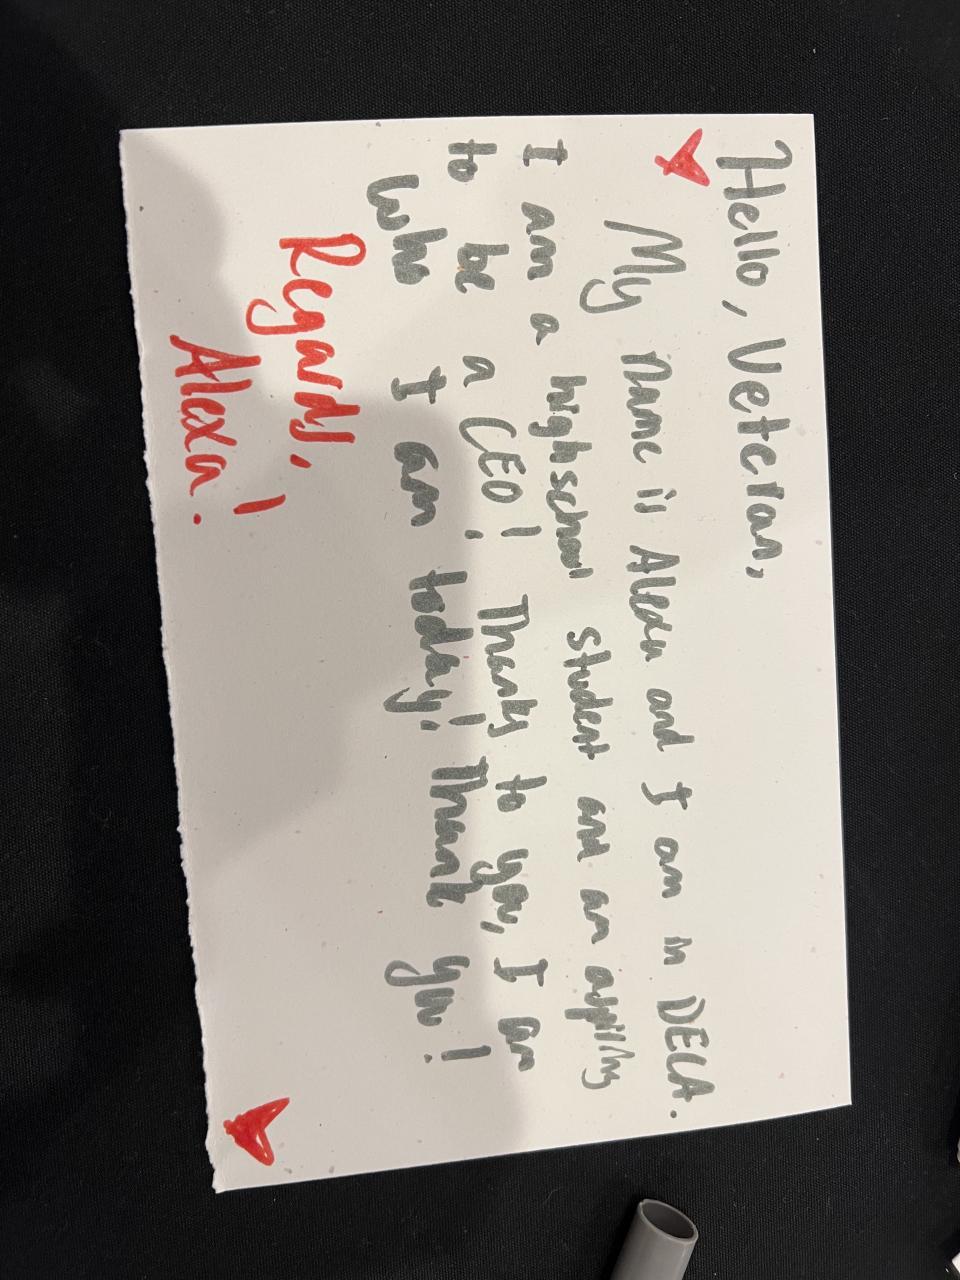 Hello, Veteran,
My name is Alexa and I am in DECA.
I am a highschool student and an aspiring
to be a CEO! Thanks to you, I am
who I am today! Thank you!
Regards,
Alexa!